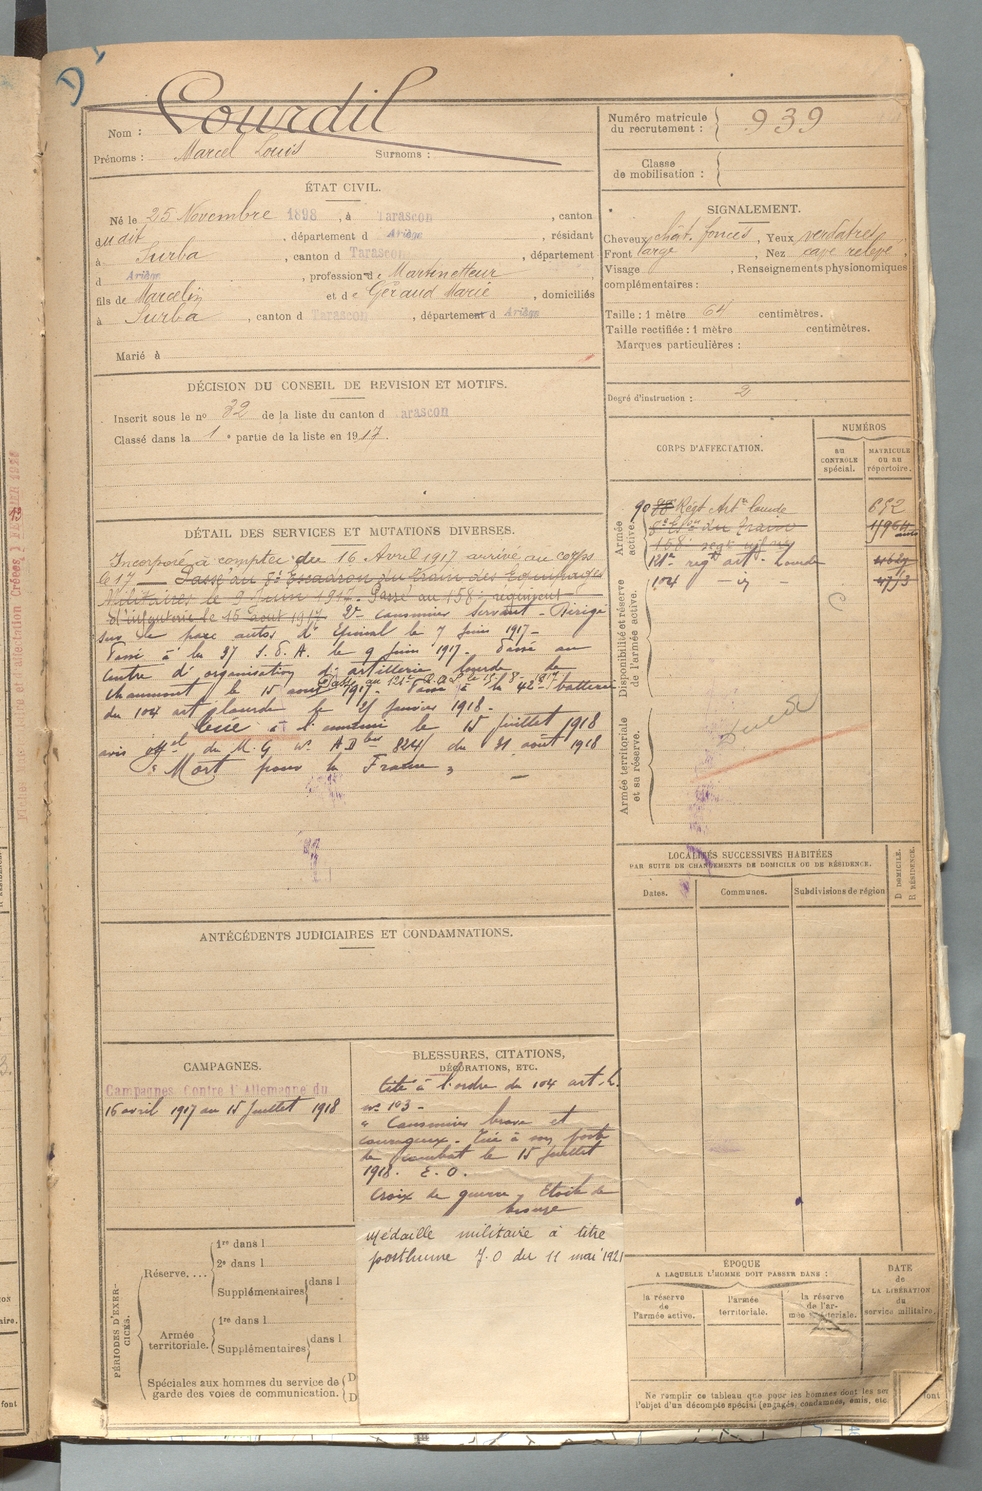 D
Nom : Courdil
Prénoms : Marcel Louis Surnoms :
Numéro matricule du recrutement : 939
Classe de mobilisation :
ÉTAT CIVIL.
Né le 25 Novembre 1898, à Tarascon, canton
dudit, département d Ariège, résidant
à Surba, canton d Tarascon, département
d Ariège, profession de Martinetteur
fils de Marcelin et de Géraud Marie, domiciliés
à Surba, canton d Tarascon, département d Ariège
Marié à
SIGNALEMENT.
Cheveux chât. foncés, Yeux verdâtres,
Front large, Nez cave relevé,
Visage , Renseignements physionomiques
complémentaires :
Taille : 1 mètre 64 centimètres.
Taille rectifiée : 1 mètre centimètres.
Marques particulières :
Degré d'instruction : 2
DÉCISION DU CONSEIL DE REVISION ET MOTIFS.
Inscrit sous le nº 32 de la liste du canton d Tarascon
Classé dans la 1e partie de la liste en 1917.
CORPS D'AFFECTATION.
NUMÉROS
AU CONTRÔLE spécial.
MATRICULE OU AU répertoire.
Armée active.
90 Régt Artie lourde 652
8e Eson du Train
158e regt inf
121e regt art. Lourde
104 - id - 4773
Disponibilité et réserve de l'armée active.
C
Armée territoriale et sa réserve.
DÉTAIL DES SERVICES ET MUTATIONS DIVERSES.
Incorporé à compter du 16 Avril 1917 arrivé au corps
le 17 — Passé au 8e Escadron du Train des Equipages
Militaires le 9 Juin 1917. Passé au 158e régiment
d'infanterie le 15 Aout 1917. 2e canonnier servant - Dirigé
sur le parc autos d'Epinal le 7 Juin 1917 -
Passé à la 37 S. P. A. le 9 Juin 1917. Passé au
centre d'organisation d'artillerie lourde de
Passé au 121e R.A.L. le 15/8-1917
Chaumont le 15 aout 1917. Passé à la 42e batterie
du 104 art lourde le janvier 1918 -
Tué à l'ennemi le 15 juillet 1918
avis offel du M. G. nº AD 824 du 31 août 1918
"Mort pour la France"
LOCALITÉS SUCCESSIVES HABITÉES
PAR SUITE DE CHANGEMENTS DE DOMICILE OU DE RÉSIDENCE.
Dates.
Communes.
Subdivisions de région
D DOMICILE. R RÉSIDENCE.
ANTÉCÉDENTS JUDICIAIRES ET CONDAMNATIONS.
CAMPAGNES.
Campagnes Contre l'Allemagne du
16 avril 1917 au 15 Juillet 1918
BLESSURES, CITATIONS,
DÉCORATIONS, ETC.
Cité à l'ordre du 104 art. L.
nº 103 -
" Canonnier brave et
courageux. Tué à son poste
de combat le 15 juillet
1918. E. O.
Croix de guerre, Etoile de
bronze
Médaille militaire à titre
posthume J.O du 11 mai 1921
PÉRIODES D'EXERCICES.
Réserve....
1re dans l
2e dans l
Supplémentaires
dans l
Armée territoriale.
1re dans l
Supplémentaires
dans l
Spéciales aux hommes du service de
garde des voies de communication.
D
D
ÉPOQUE
A LAQUELLE L'HOMME DOIT PASSER DANS :
la réserve de l'armée active.
l'armée territoriale.
la réserve de l'armée territoriale.
DATE de LA LIBÉRATION du service militaire.
Ne remplir ce tableau que pour les hommes dont les ser
l'objet d'un décompte spécial (engagés, condamnés, omis, etc.
font